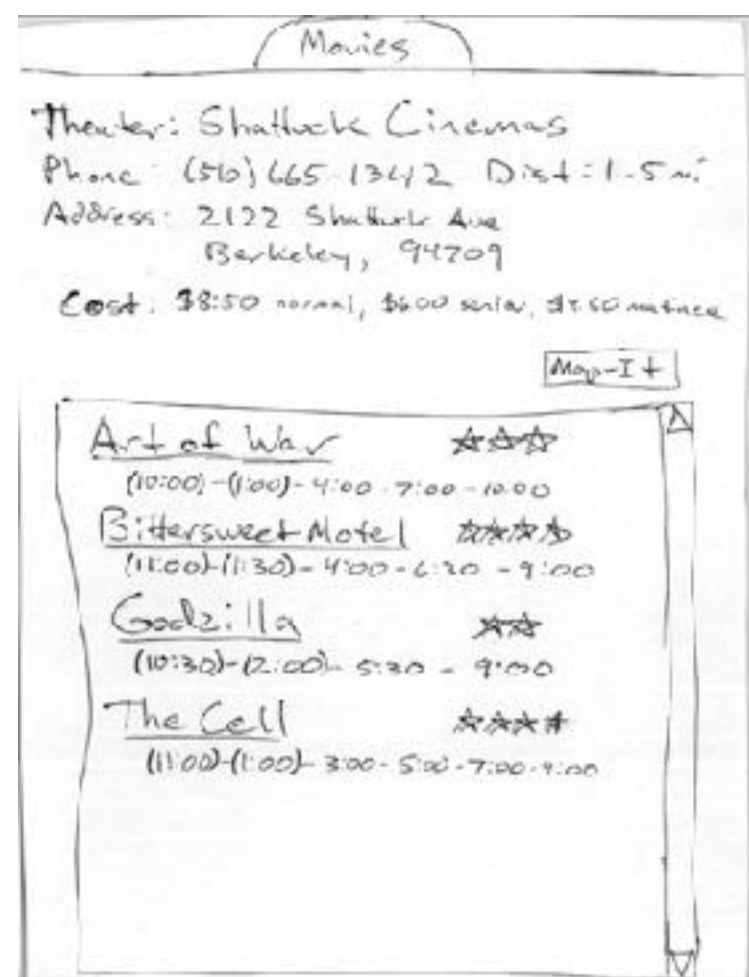 Movies
Theater: Shattuck Cinemas
Phone: (510) 665-1342 Dist: 1.5 mi
Address: 2122 Shattuck Ave
Berkeley, 94709
Cost: $8:50 normal, $6:00 senior, matinee
Map-It
Art of War ☆☆☆
(10:00)-(1:00)-4:00-7:00-10:00
Bittersweet Motel ☆☆☆☆
(11:00)-(1:30)-4:00-6:30-9:00
Godzilla ☆☆
(10:30)-(2:00)-5:30-9:00
The Cell ☆☆☆☆
(11:00)-(1:00)-3:00-5:00-7:00-9:00